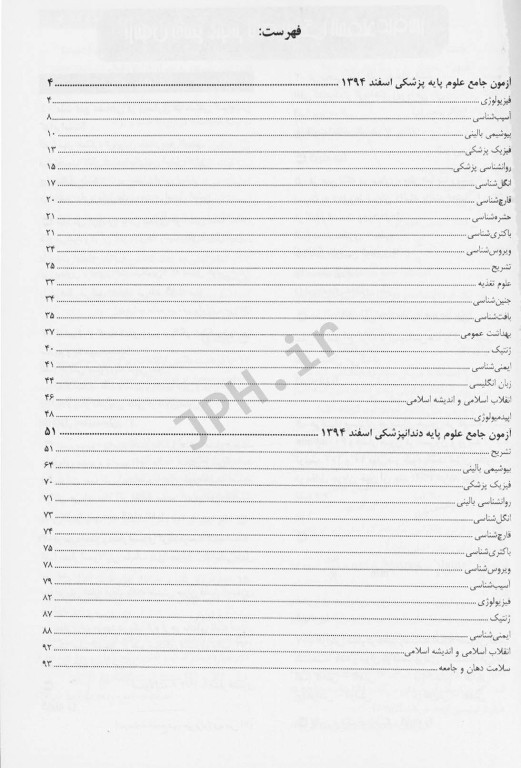 فهرست:
آزمون جامع علوم پایه پزشکی اسفند ۱۳۹۴ ... ۴
فیزیولوژی ... ۴
آسیب‌شناسی ... ۸
بیوشیمی بالینی ... ۱۰
فیزیک پزشکی ... ۱۳
روانشناسی پزشکی ... ۱۵
انگل‌شناسی ... ۱۷
قارچ‌شناسی ... ۲۰
حشره‌شناسی ... ۲۱
باکتری‌شناسی ... ۲۱
ویروس‌شناسی ... ۲۴
تشریح ... ۲۵
علوم تغذیه ... ۳۳
جنین‌شناسی ... ۳۴
بافت‌شناسی ... ۳۵
بهداشت عمومی ... ۳۷
ژنتیک ... ۴۰
ایمنی‌شناسی ... ۴۱
زبان انگلیسی ... ۴۴
انقلاب اسلامی و اندیشه اسلامی ... ۴۶
اپیدمیولوژی ... ۴۸
آزمون جامع علوم پایه دندانپزشکی اسفند ۱۳۹۴ ... ۵۱
تشریح ... ۵۱
بیوشیمی بالینی ... ۶۴
فیزیک پزشکی ... ۷۰
روانشناسی بالینی ... ۷۱
انگل‌شناسی ... ۷۳
قارچ‌شناسی ... ۷۴
باکتری‌شناسی ... ۷۵
ویروس‌شناسی ... ۷۸
آسیب‌شناسی ... ۷۹
فیزیولوژی ... ۸۲
ژنتیک ... ۸۷
ایمنی‌شناسی ... ۸۸
انقلاب اسلامی و اندیشه اسلامی ... ۹۲
سلامت دهان و جامعه ... ۹۳
JPH.ir